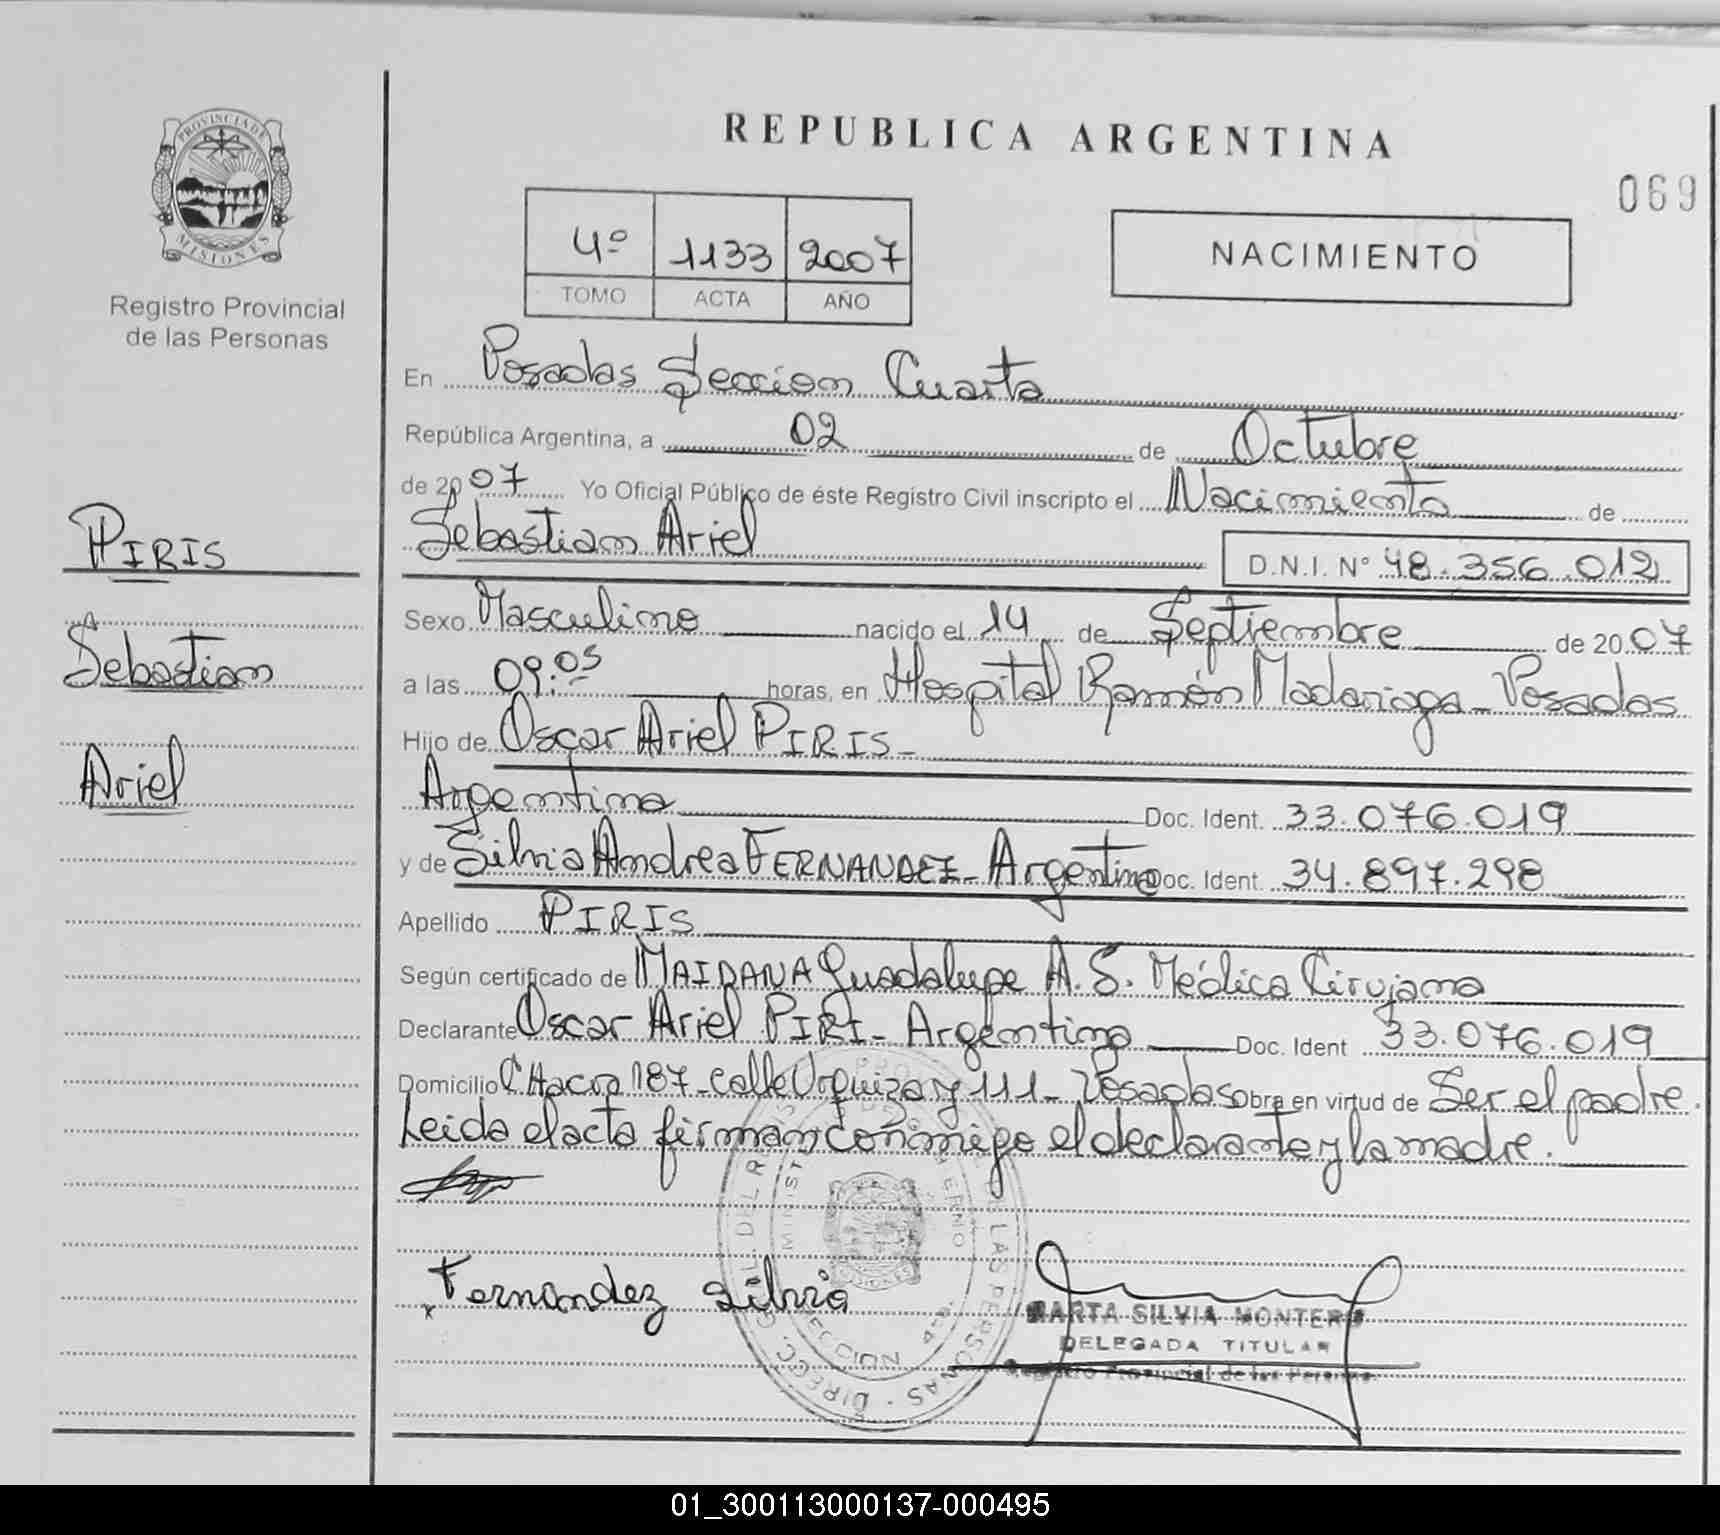 PROVINCIA DE
MISIONES
Registro Provincial
de las Personas
PIRIS
Sebastian
Ariel
REPUBLICA ARGENTINA
069
4º 1133 2007
TOMO ACTA AÑO
NACIMIENTO
En Posadas Seccion Cuarta
República Argentina, a 02 de Octubre
de 2007 Yo Oficial Público de éste Registro Civil inscripto el Nacimiento de
Sebastian Ariel D.N.I. N° 48.356.012
Sexo Masculino nacido el 14 de Septiembre de 2007
a las 09:05 horas, en Hospital Ramón Madariaga - Posadas
Hijo de Oscar Ariel PIRIS -
Argentino Doc. Ident. 33.076.019
y de Silvia Andrea FERNANDEZ - Argentina Doc. Ident. 34.897.298
Apellido PIRIS
Según certificado de MAIDANA Guadalupe A. S. Médica Cirujana
Declarante Oscar Ariel PIRI - Argentino Doc. Ident 33.076.019
Domicilio CHacra 187 - calle Urquiza y 111 - Posadas Obra en virtud de Ser el padre.
Leida el acta firman conmigo el declarante y la madre.
Fernandez Silvia
MARTA SILVIA MONTERO
DELEGADA TITULAR
Registro Provincial de las Personas
01_300113000137-000495